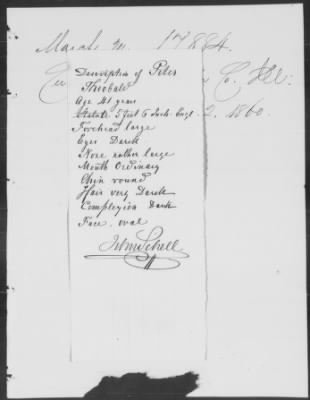 March 17884.
Description of Peter
Theobald
Age 41 years
Stature 5 feet 6 Inch. Engl. 2. 1860.
Forehead large
Eyes Darck
Nose rather large
Mouth Ordinary
Chin round
Hair very Darck
Complexion Darck
Face oval